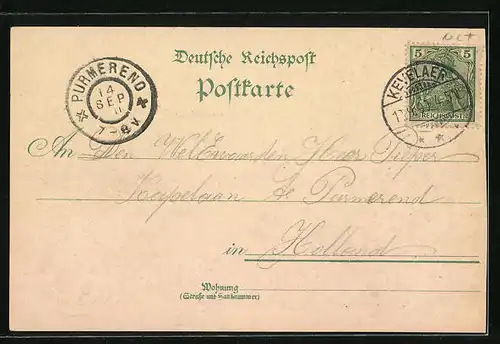 Deutsche Reichspost
Postkarte
PURMEREND
14
SEP
7-8V
KEVELAER
5 5
REICHSPOST
An Den WelEerwaarden Heer Pieper
Kapelaan te Purmerend
in Holland
Wohnung
(Straße und Hausnummer)